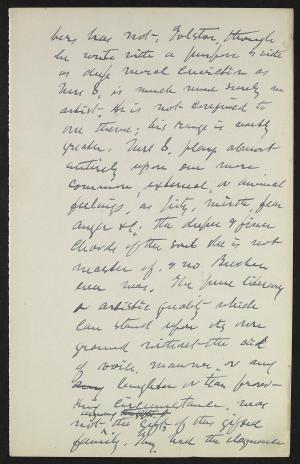 bers has not. Tolstoi, though
he writes with a purpose & with
as deep moral conviction as
Mrs S, is much more surely an
artist. He is not confined to
one theme; his range is vastly
greater. Mrs S. plays almost
entirely upon our more
common, external, or animal
feelings, as pity, mirth fear
anger &c. The deeper & finer
chords of the soul she is not
master of. & no Beecher
ever was. The pure literary
or artistic quality which
can stand upon its own
ground without the aid
of voice, manner, or any
laughter or tear provo-
king circumstance, was
not among the gifts of this gifted
family. They had the eloquence